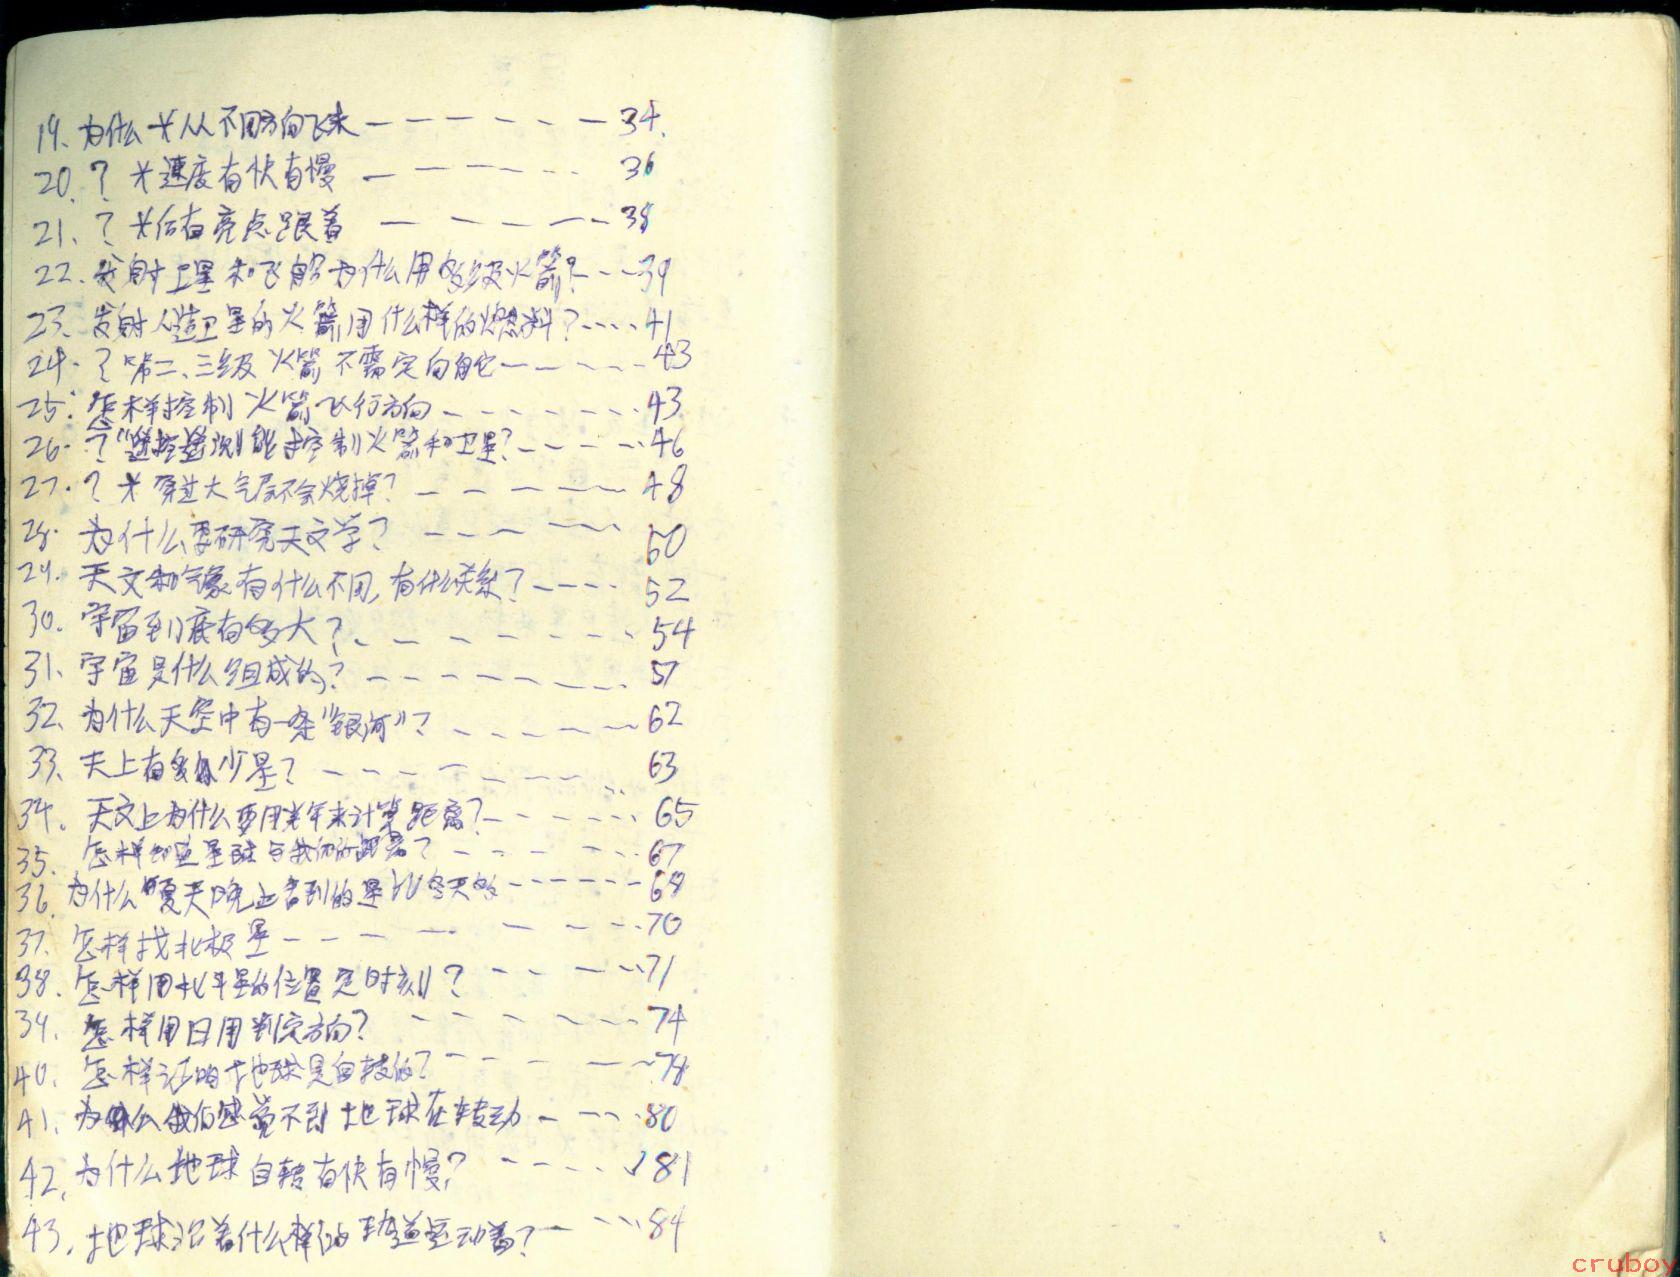 19. 为什么※从不同方向飞来 ------ 34.
20. ? ※速度有快有慢 ------ 36
21. ? ※后有亮点跟着 ------ 38
22. 发射卫星和飞船为什么用多级火箭? --- 39
23. 发射人造卫星的火箭用什么样的燃料? ---- 41
24. ? 第二、三级火箭不需定向舵 ------ 43
25. 怎样控制火箭飞行方向 ------- 43
26. ? "遥控遥测"能控制火箭和卫星? ----- 46
27. ? ※穿过大气层不会烧掉? ----- 48
28. 为什么要研究天文学? ------ 50
29. 天文和气象有什么不同, 有什么关系? ---- 52
30. 宇宙到底有多大? ------- 54
31. 宇宙是什么组成的? ------- 57
32. 为什么天空中有一条"银河"? ------ 62
33. 天上有多少星? ------ 63
34. 天文上为什么要用光年来计算距离? ------ 65
35. 怎样知道星球与我们的距离? ----- 67
36. 为什么夏天晚上看到的星比冬天多 ------ 68
37. 怎样找北极星 -------- 70
38. 怎样用北斗星的位置定时刻? ----- 71
39. 怎样用日用判定方向? ------ 74
40. 怎样证明地球是自转的? ----- 78
41. 为什么我们感觉不到地球在转动 ---- 80
42. 为什么地球自转有快有慢? ----- 81
43. 地球沿着什么样的轨道运动着? ---- 84
cruboy